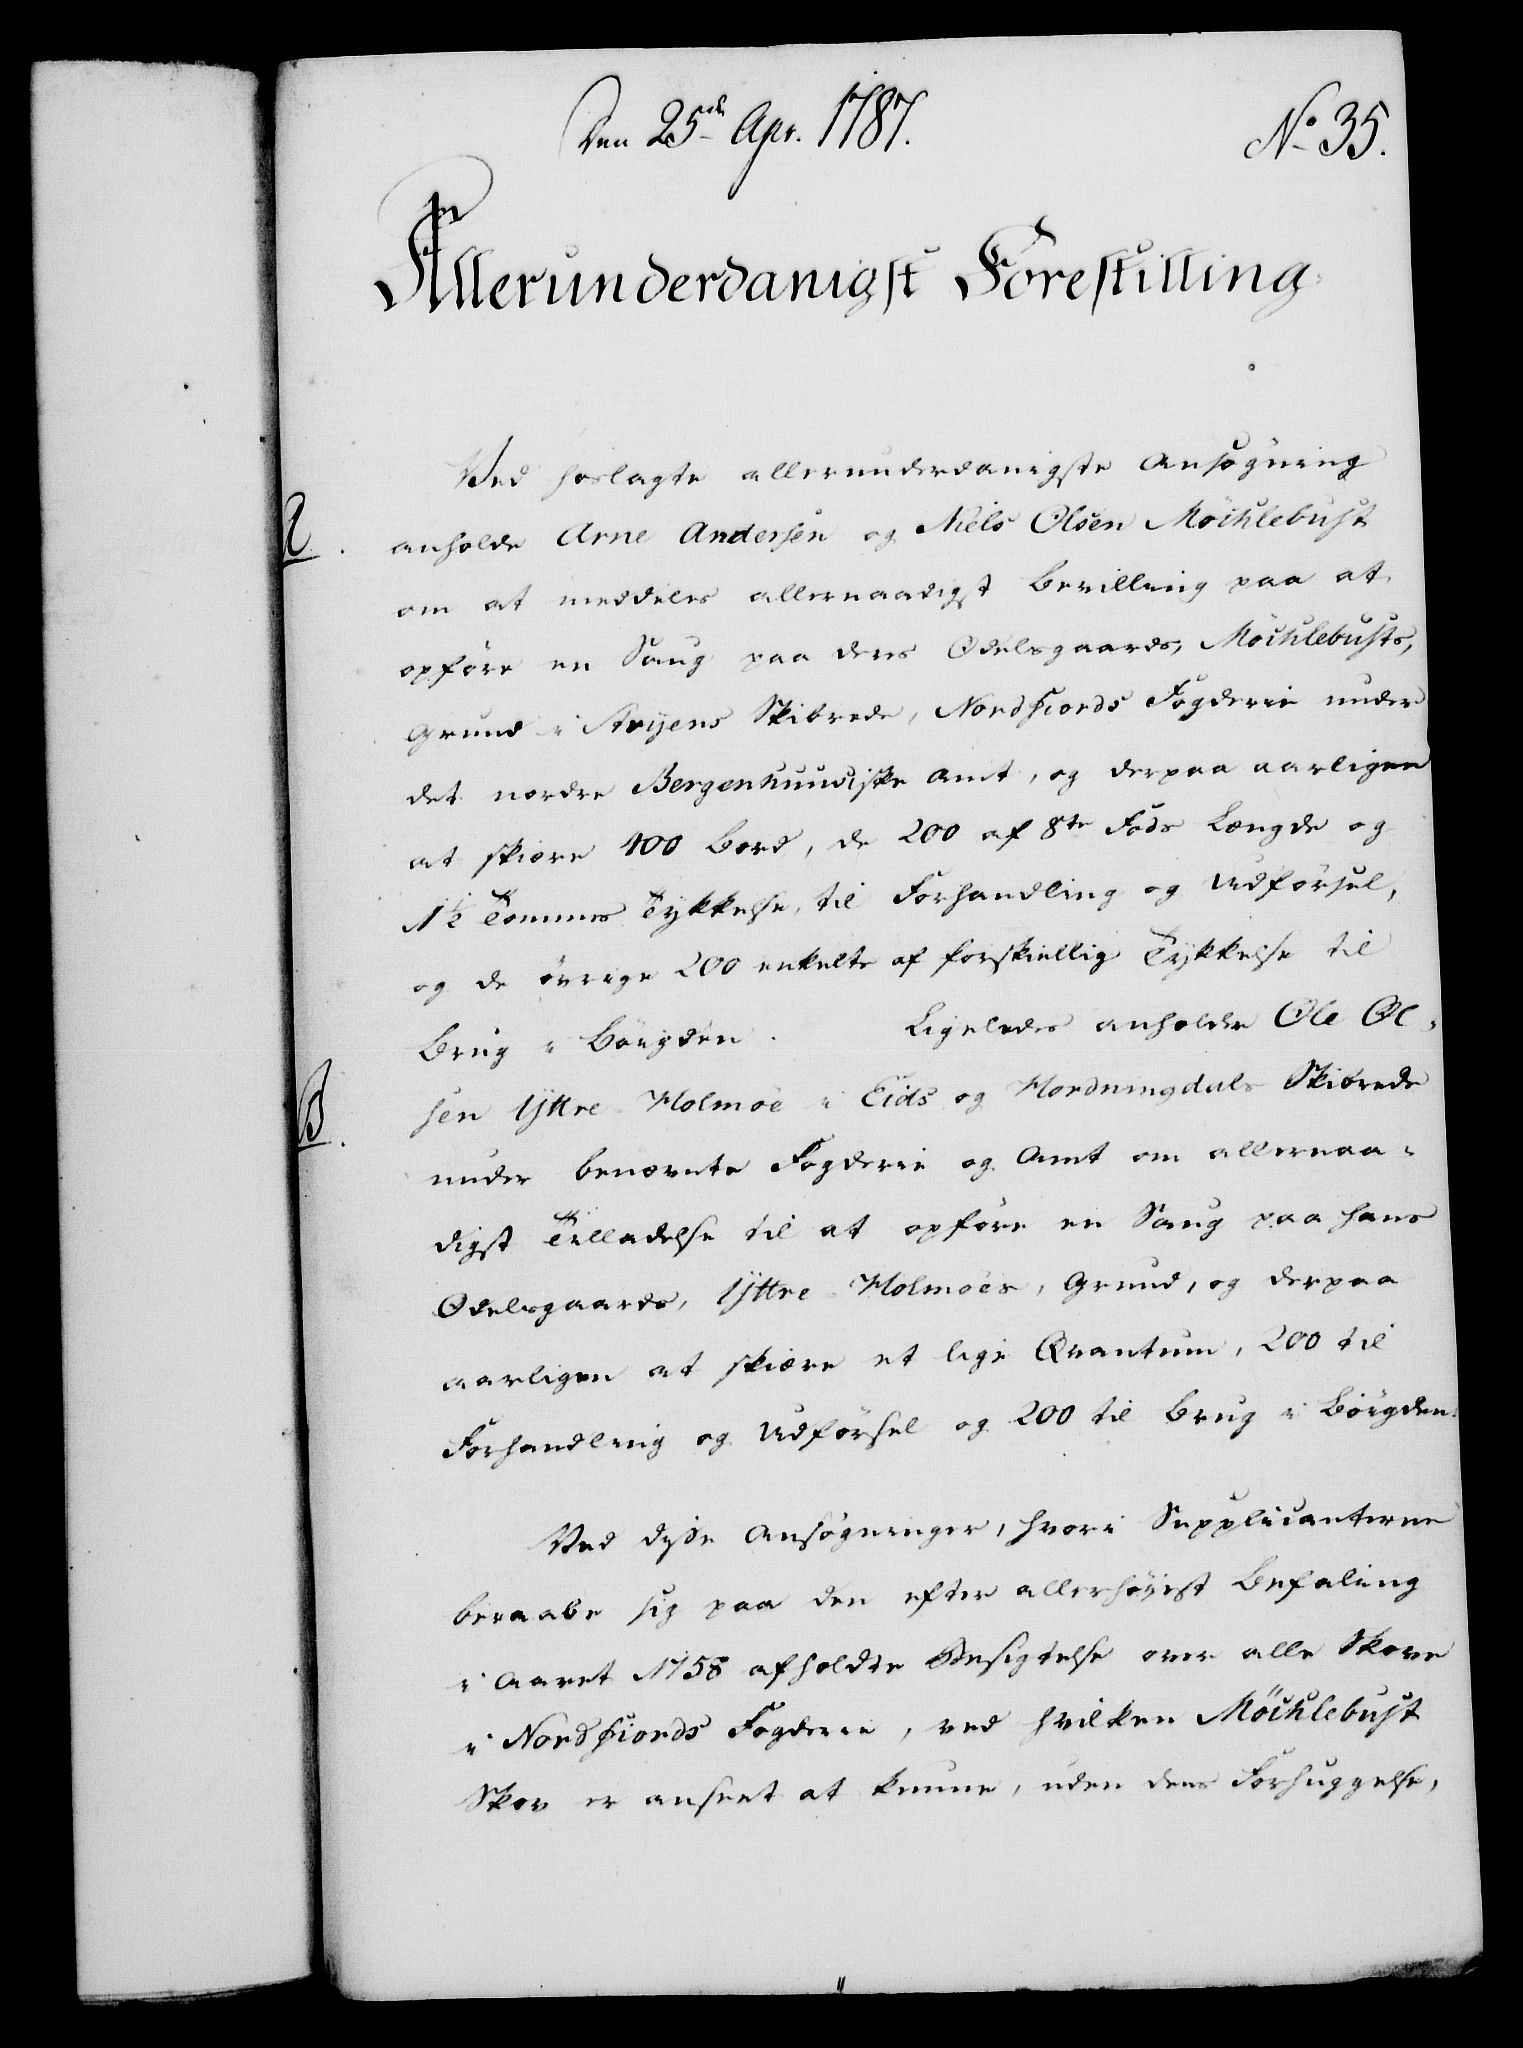 Den 25de Apr. 1787.
No 35.
Allerunderdanigst Forestilling
Ved hoslagte allerunderdanigste Ansøgning
A. anholde Arne Andersen og Niels Olsen Möchlebust
om at meddeles allernaadigst Bevilling paa at
opføre en Saug paa deres Odelsgaards, Möchlebusts,
Grund i Stryens Skibrede, Nordfiords Fogderie under
det nordre Bergenhuusiske Amt, og derpaa aarligen
at skiære 400 Bord, de 200 af 8te Fods Længde og
1½ Tommes Tykkelse, til Forhandling og Udførsel,
og de øvrige 200 enkelte af forskiellig Tykkelse til
Brug i Bøigden. Ligeledes anholder Ole Ol-
B. sen Yttre-Holmøe i Eids og Hordningdals Skibrede
under benævnte Fogderie og Amt om allernaa-
digst Tilladelse til at opføre en Saug paa hans
Odelsgaards, Yttre-Holmøes, Grund, og derpaa
aarligen at skiære et lige Qvantum, 200 til
Forhandling og Udførsel og 200 til Brug i Bøigden.
Ved disse Ansøgninger, hvori Supplicanterne
beraabe sig paa den efter allerhøyest Befaling
i Aaret 1758 afholdte Besigtelse over alle Skove
i Nordfiords Fogderie, ved hvilken Möchlebust
Skov er anseet at kunne, uden dens Forhuggelse,